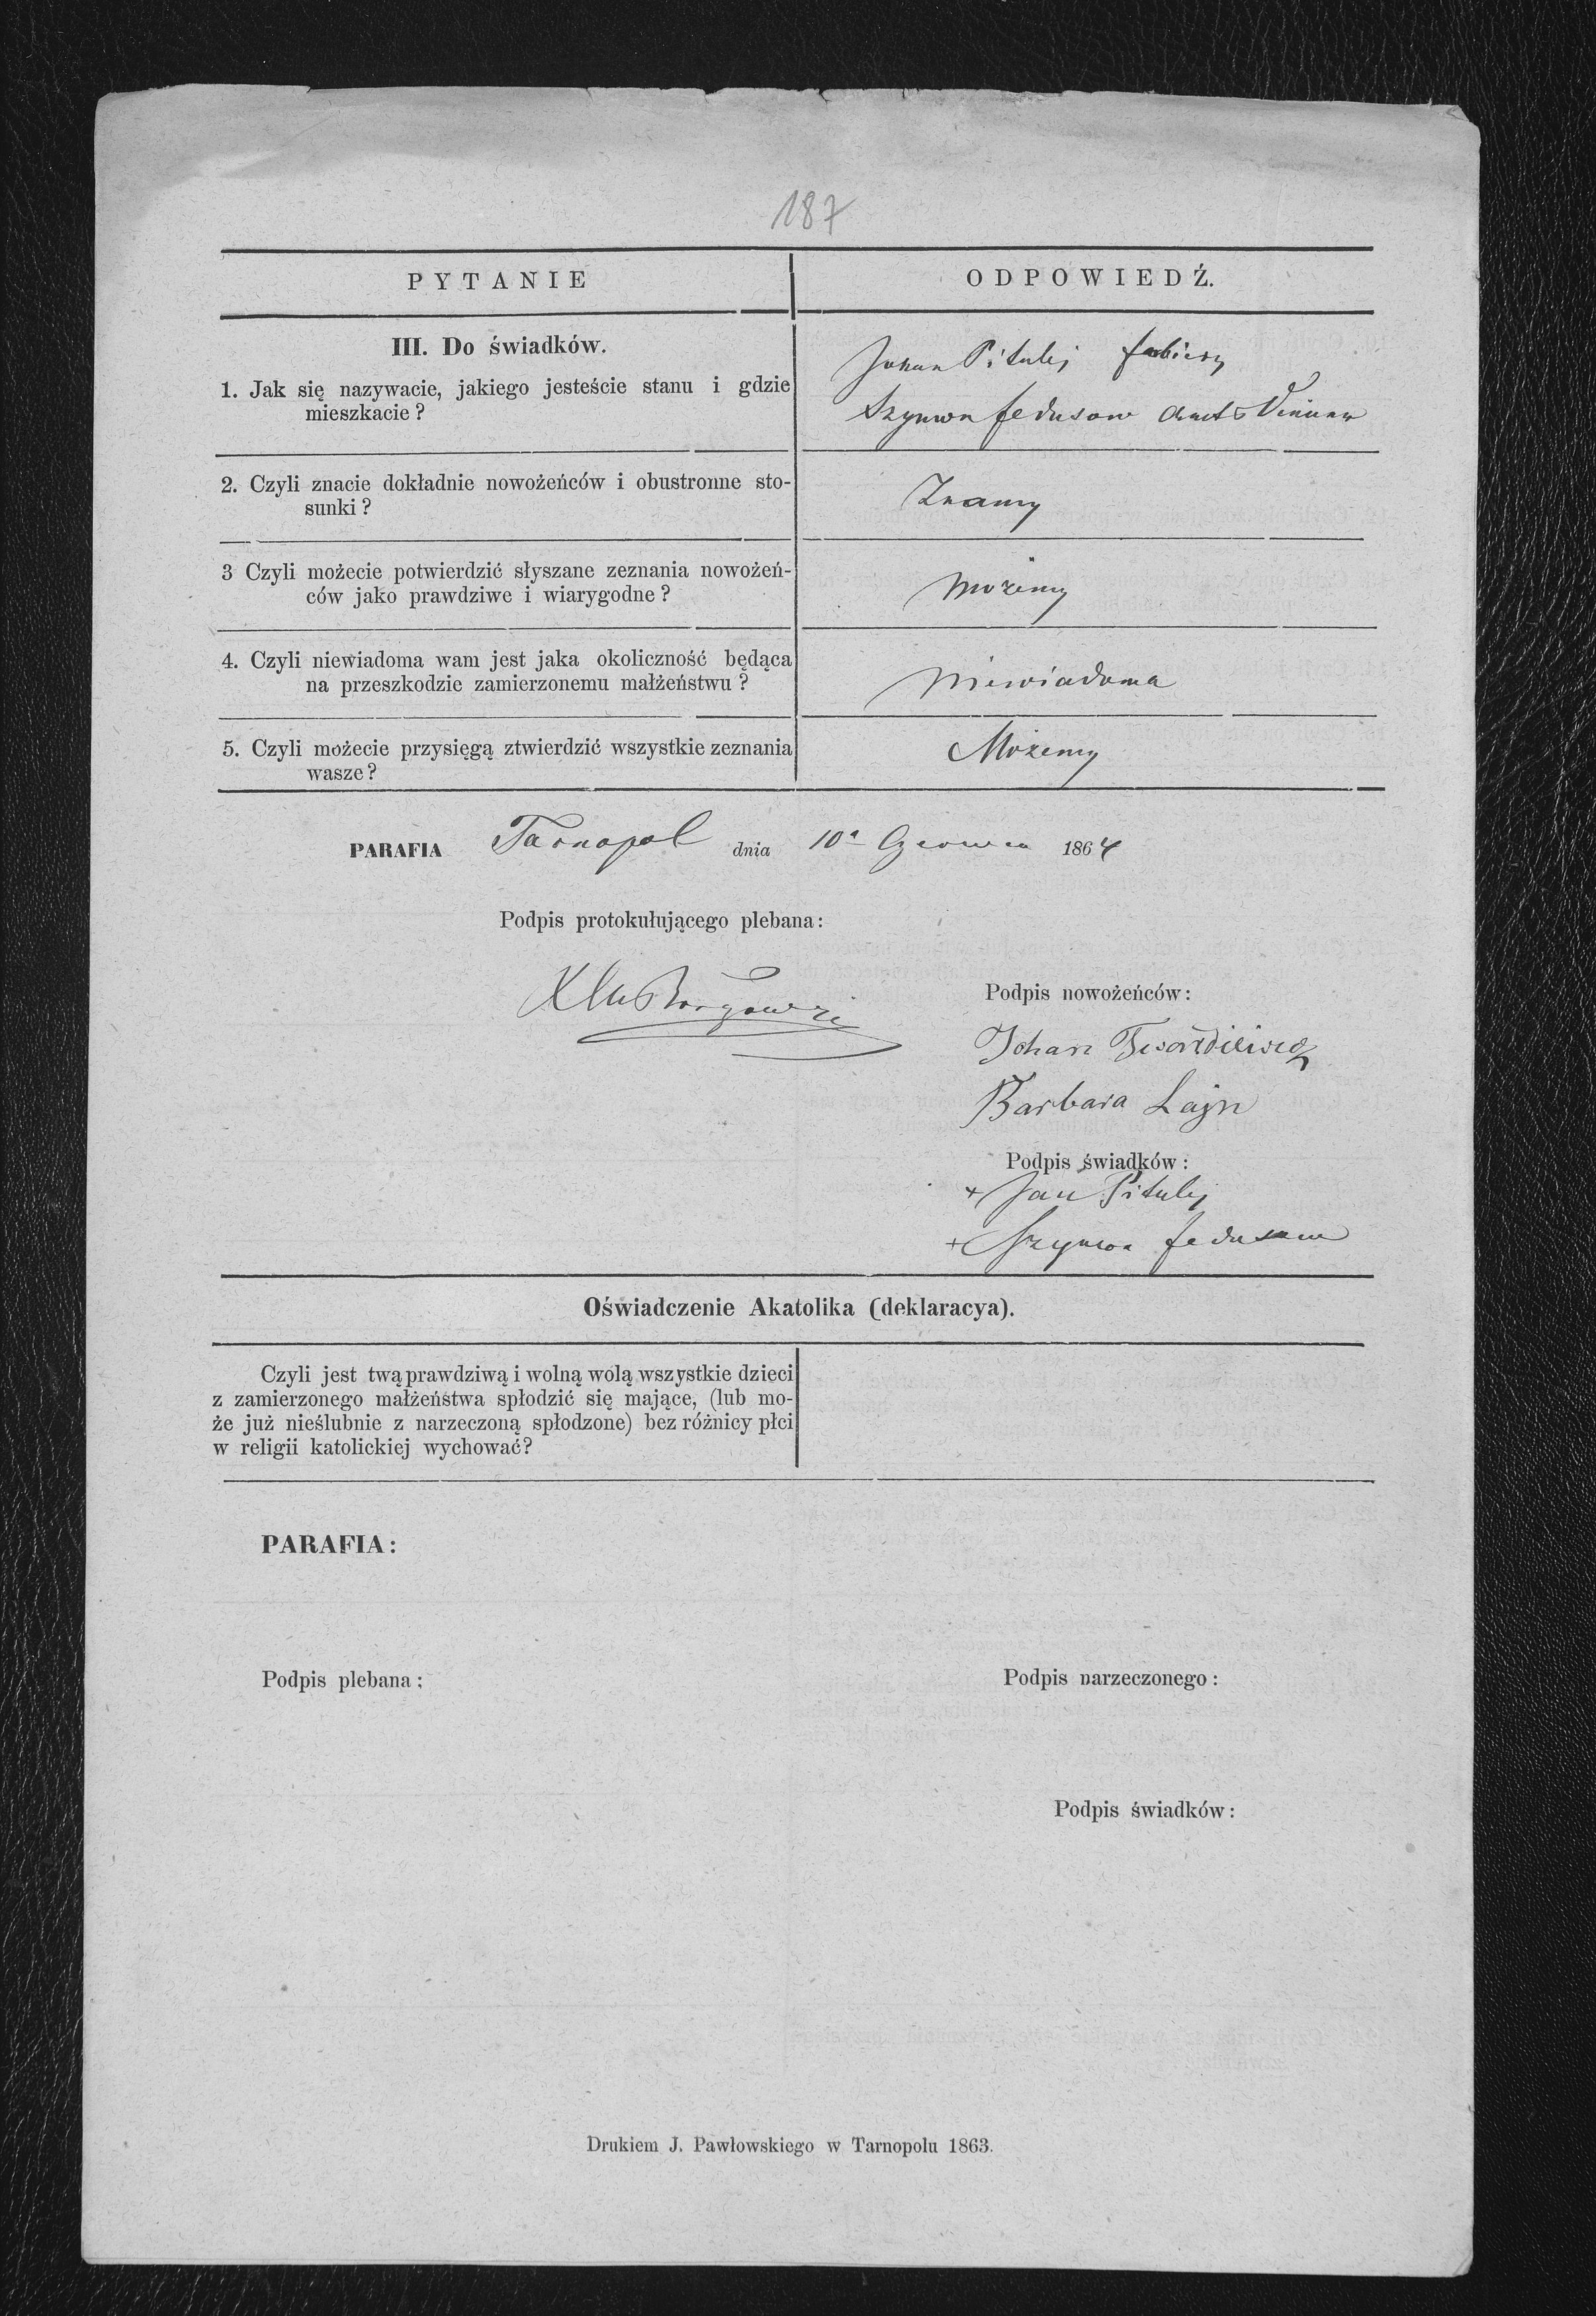 187
PYTANIE
ODPOWIEDŹ.
III. Do świadków.
1. Jak się nazywacie, jakiego jesteście stanu i gdzie
mieszkacie?
Johan Pituley
Szymon fedusow Amts Diener
2. Czyli znacie dokładnie nowożeńców i obustronne sto-
sunki?
Znamy
3 Czyli możecie potwierdzić słyszane zeznania nowożeń-
ców jako prawdziwe i wiarygodne?
możemy
4. Czyli niewiadoma wam jest jaka okoliczność będąca
na przeszkodzie zamierzonemu małżeństwu?
niewiadoma
5. Czyli możecie przysięgą ztwierdzić wszystkie zeznania
wasze?
Możemy
PARAFIA Tarnopol dnia 10a Czerwca 1864
Podpis protokułującego plebana:
Podpis nowożeńców:
Johan
Barbara Lajn
Podpis świadków:
+ Jan Pituley
+ Szymon fedusow
Oświadczenie Akatolika (deklaracya).
Czyli jest twą prawdziwą i wolną wolą wszystkie dzieci
z zamierzonego małżeństwa spłodzić się mające, (lub mo-
że już nieślubnie z narzeczoną spłodzone) bez różnicy płci
w religii katolickiej wychować?
PARAFIA:
Podpis plebana;
Podpis narzeczonego:
Podpis świadków:
Drukiem J. Pawłowskiego w Tarnopolu 1863.